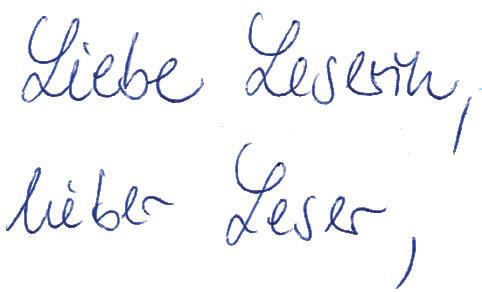 Liebe Leserin,
lieber Leser,